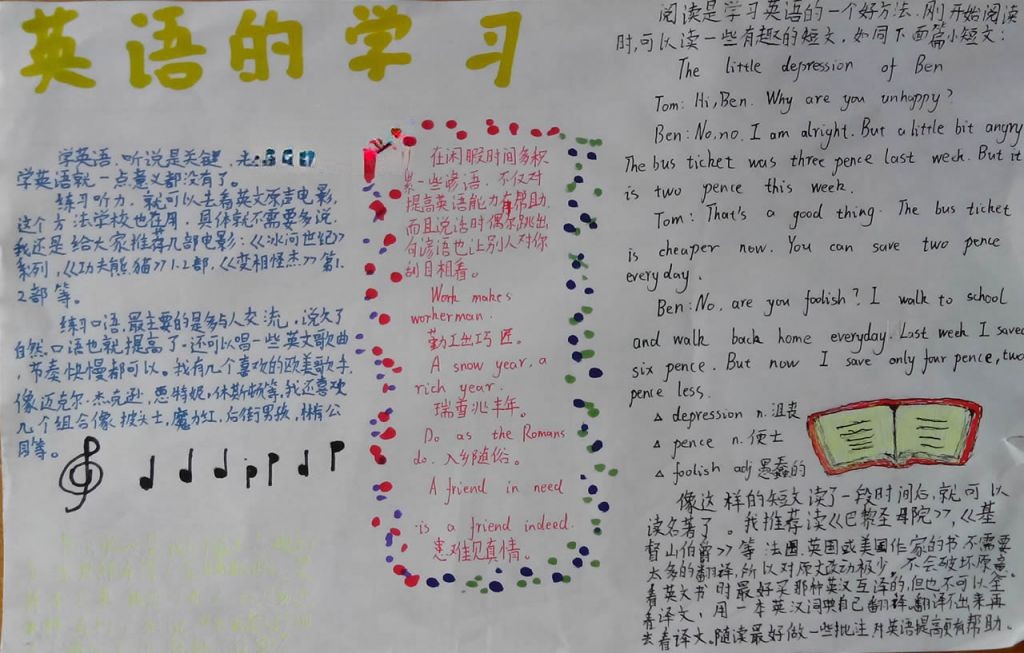 英语的学习
学英语、听说是关键、
学英语就一点意义都没有了。
练习听力，就可以去看英文原声电影，
这个方法学校也在用，具体就不需要多说，
我还是给大家推荐几部电影：《冰河世纪》
系列，《功夫熊猫》1.2部，《变相怪杰》第1.
2部等。
练习口语，最主要的是多与人交流，说久了
自然口语也就提高了。还可以唱一些英文歌曲
，节奏快慢都可以。我有几个喜欢的欧美歌手，
像迈克尔·杰克逊，恩特妮，休斯顿等，我还喜欢
几个组合像披头士，魔力红，后街男孩，林肯公
园等。
在闲暇时间多积
累一些谚语，不仅对
提高英语能力有帮助
而且说话时偶尔跳出
句谚语也让别人对你
刮目相看。
Work makes
workerman.
勤工出巧匠。
A snow year, a
rich year.
瑞雪兆丰年。
Do as the Romans
do. 入乡随俗。
A friend in need
is a friend indeed.
患难见真情。
阅读是学习英语的一个好方法、刚开始阅读
时，可以读一些有趣的短文，如同下面篇小短文：
The little depression of Ben
Tom: Hi, Ben. Why are you unhappy?
Ben: No, no. I am alright. But a little bit angry
The bus ticket was three pence last week. But it
is two pence this week.
Tom: That's a good thing. The bus ticket
is cheaper now. You can save two pence
everyday.
Ben: No, are you foolish? I walk to school
and walk back home everyday. Last week I saved
six pence. But now I save only four pence, two
pence less.
△ depression n. 沮丧
△ pence n. 便士
△ foolish adj 愚蠢的
像这样的短文读了一段时间后，就可以
读名著了。我推荐读《巴黎圣母院》，《基
督山伯爵》等法国、英国或美国作家的书，不需要
太多的翻译，所以对原文改动极少，不会破坏原意。
看英文书时最好买那种英汉互译的，但也不可以全
看译文，用一本英汉词典自己翻译，翻译不出来再
去看译文。随读最好做一些批注对英语提高更有帮助。